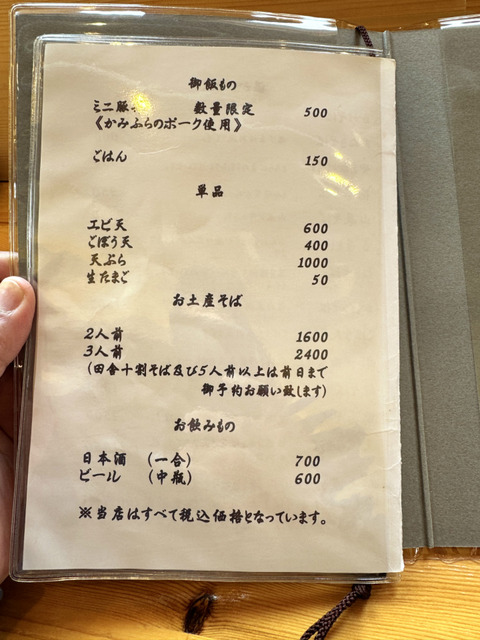 御飯もの
ミニ豚 数量限定 500
《かみふらのポーク使用》
ごはん 150
単品
エビ天 600
ごぼう天 400
天ぷら 1000
生たまご 50
お土産そば
2人前 1600
3人前 2400
(田舎十割そば及び5人前以上は前日まで
御予約お願い致します)
お飲みもの
日本酒 (一合) 700
ビール (中瓶) 600
※当店はすべて税込価格となっています。